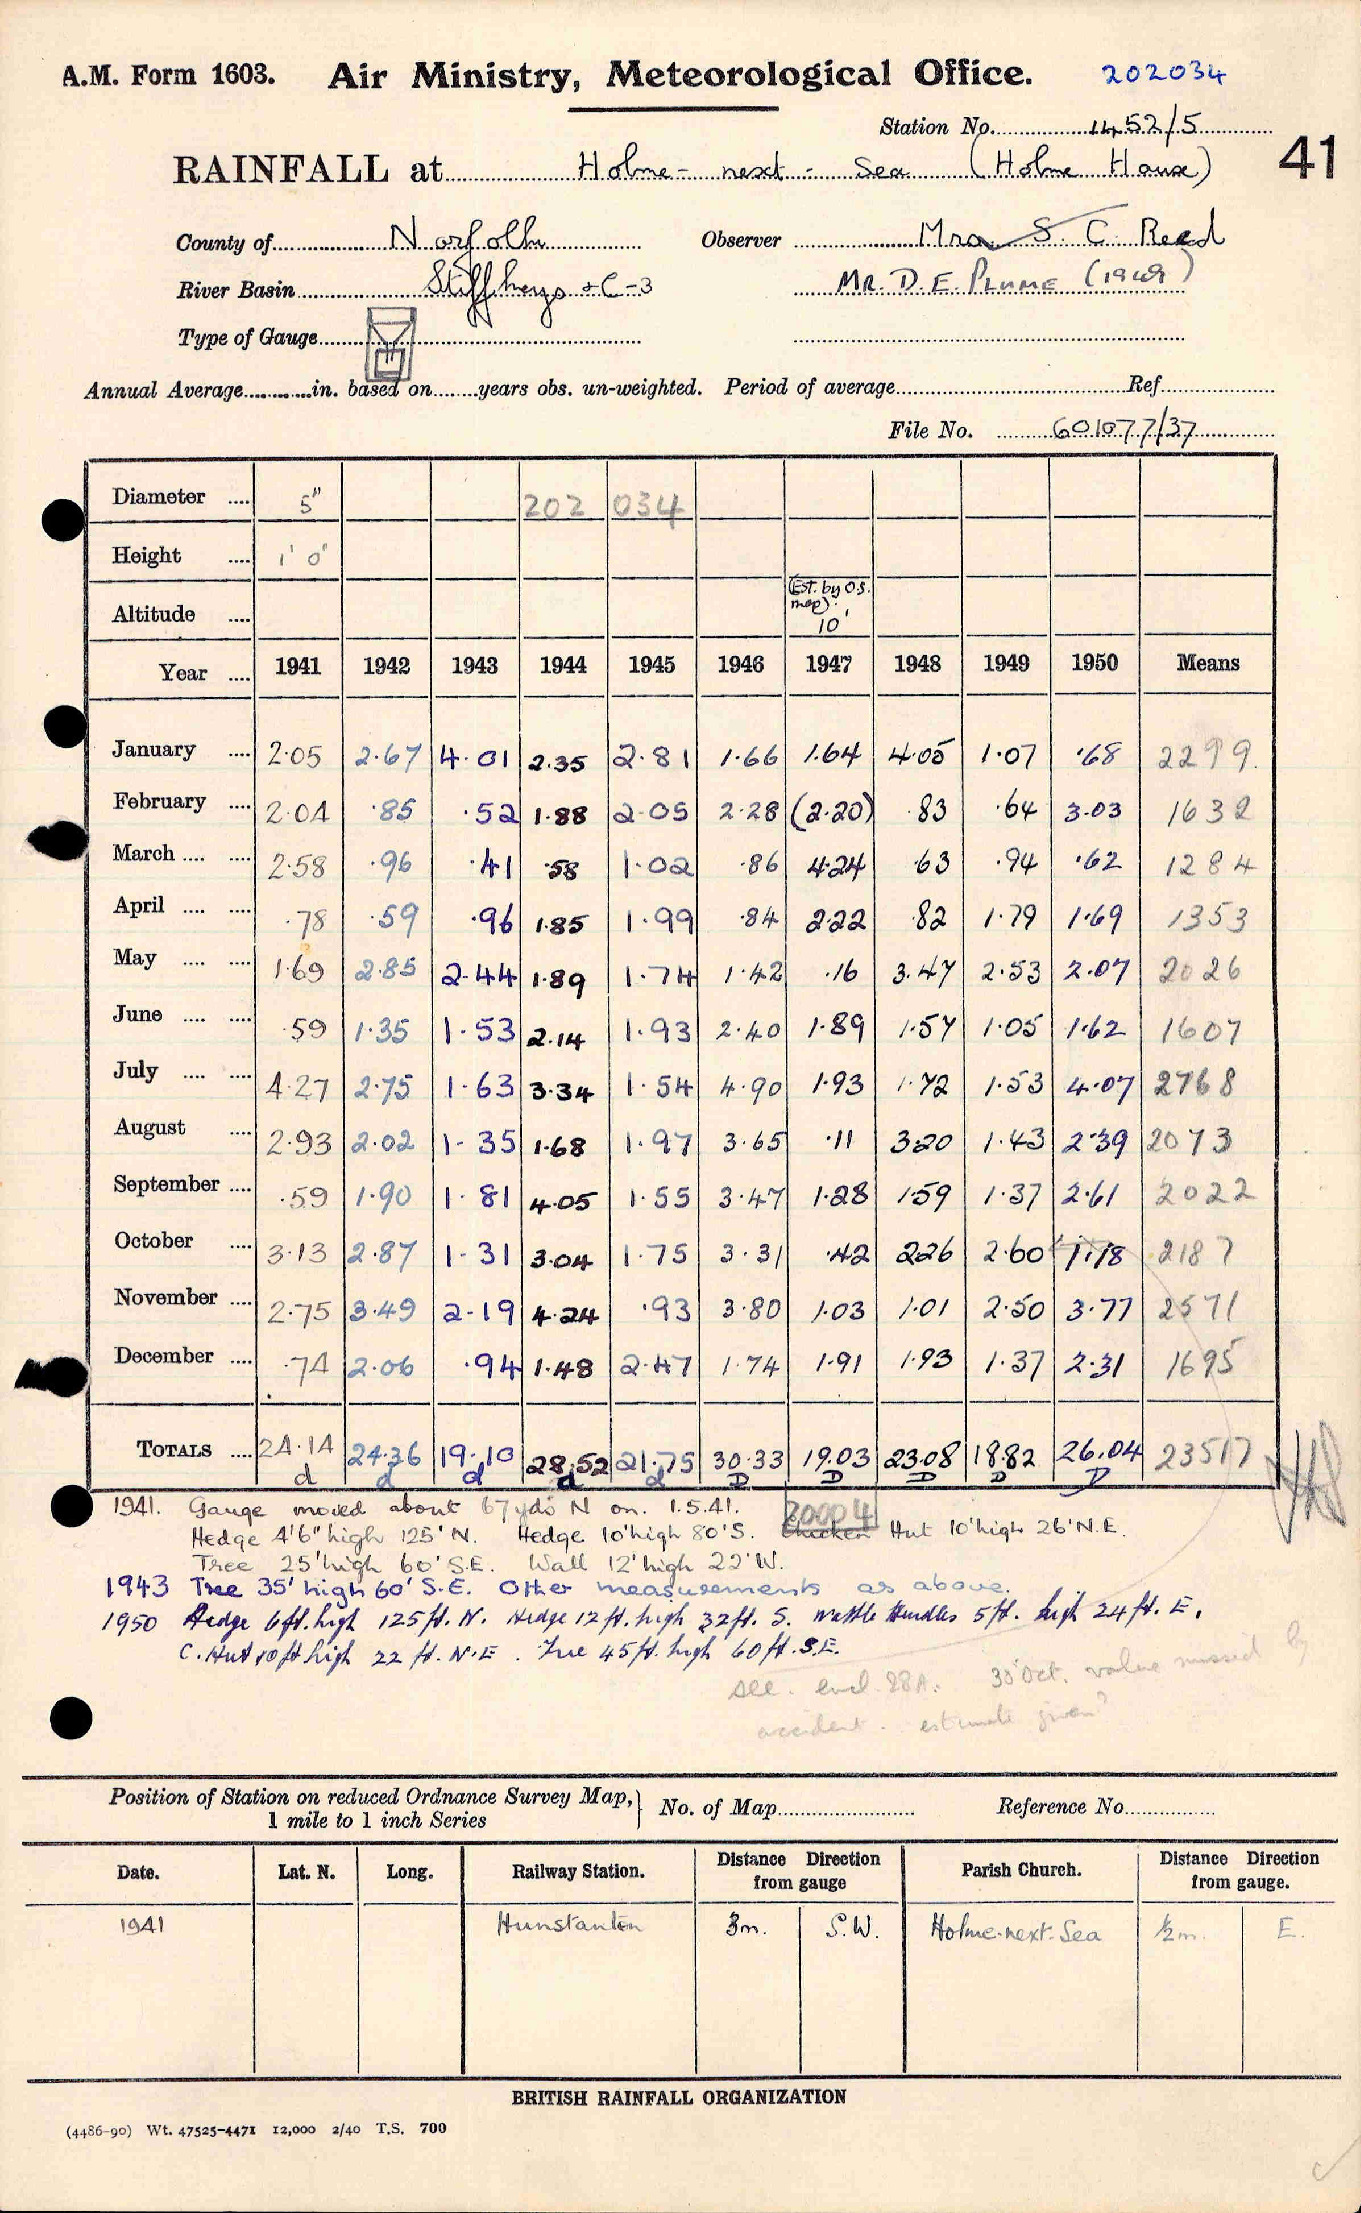 A.M. Form 1603. Air Ministry, Meteorological Office. 202034
Station No. 1452/5
41
RAINFALL at Holme - next - Sea (Holme House)
County of Norfolk Observer Mrs S. C. Reed
River Basin Stiffkey &C-3 MR. D. E. PLUME (1949)
Type of Gauge
Annual Average in. based on years obs. un-weighted. Period of average Ref
File No. 601077/37
Diameter .... 5" 202 034
Height .... 1' 0"
Altitude .... (Est. by O.S. map) 10'
Year .... 1941 1942 1943 1944 1945 1946 1947 1948 1949 1950 Means
January .... 2.05 2.67 4.01 2.35 2.81 1.66 1.64 4.05 1.07 .68 2299
February .... 2.04 .85 .52 1.88 2.05 2.28 (2.20) .83 .64 3.03 1632
March .... .... 2.58 .96 .41 .58 1.02 .86 4.24 .63 .94 .62 1284
April .... .... .78 .59 .96 1.85 1.99 .84 2.22 .82 1.79 1.69 1353
May .... .... 1.69 2.85 2.44 1.89 1.74 1.42 .16 3.47 2.53 2.07 2026
June .... .... .59 1.35 1.53 2.14 1.93 2.40 1.89 1.57 1.05 1.62 1607
July .... .... 4.27 2.75 1.63 3.34 1.54 4.90 1.93 1.72 1.53 4.07 2768
August .... 2.93 2.02 1.35 1.68 1.97 3.65 .11 3.20 1.43 2.39 2073
September .... .59 1.90 1.81 4.05 1.55 3.47 1.28 1.59 1.37 2.61 2022
October .... 3.13 2.87 1.31 3.04 1.75 3.31 .42 2.26 2.60 1.18 2187
November .... 2.75 3.49 2.19 4.24 .93 3.80 1.03 1.01 2.50 3.77 2571
December .... .74 2.06 .94 1.48 2.47 1.74 1.91 1.93 1.37 2.31 1695
TOTALS .... 24.14 24.36 19.10 28.52 21.75 30.33 19.03 23.08 18.82 26.04 23517
d d d d d D D D D D
1941. Gauge moved about 67yds N on 1.5.41. 20004
Hedge 4'6" high 125' N. Hedge 10' high 80' S. Chicken Hut 10' high 26' N.E.
Tree 25' high 60' S.E. Wall 12' high 22' W.
1943 Tree 35' high 60' S.E. Other measurements as above.
1950 Hedge 6ft. high 125ft. N. Hedge 12ft. high 32ft. S. Wattle Hurdles 5ft. high 24ft. E.
C. Hut 10ft high 22 ft. N.E. Tree 45ft. high 60ft. S.E.
See. encl. 28A. 30 Oct. value missed by
accident. estimate given?
Position of Station on reduced Ordnance Survey Map, No. of Map Reference No.
1 mile to 1 inch Series
Date. Lat. N. Long. Railway Station. Distance from gauge Direction Parish Church. Distance from gauge. Direction
1941 Hunstanton 3m. S.W. Holme-next-Sea ½m. E.
BRITISH RAINFALL ORGANIZATION
(4486-90) Wt. 47525-4471 12,000 2/40 T.S. 700